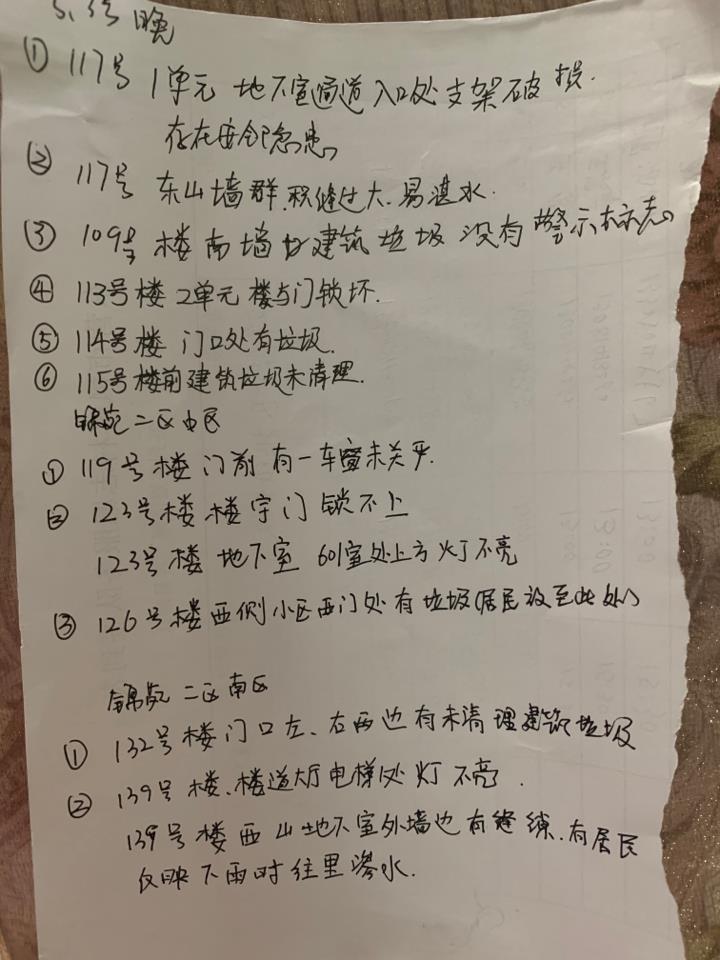 晚
① 117号 1单元 地下室通道入口处支架破损.
存在安全隐患
② 117号 东山墙群.积缝过大.易湛水.
③ 109号 楼南墙处建筑垃圾 没有警示标志
④ 113号楼 2单元 楼与门锁坏.
⑤ 114号楼 门口处有垃圾.
⑥ 115号楼前建筑垃圾未清理.
锦苑二区中区
① 119号楼门前有一车窗未关乎.
② 123号楼楼宇门锁不上
123号楼 地下室 601室处上方灯不亮
③ 126号楼西侧小区西门处有垃圾(居民放至此处)
锦苑二区南区
① 132号楼门口左、右两边有未清理建筑垃圾
② 139号楼、楼道大厅电梯处灯不亮.
139号楼西山地下室外墙也有缝.有居民
反映下雨时往里渗水.